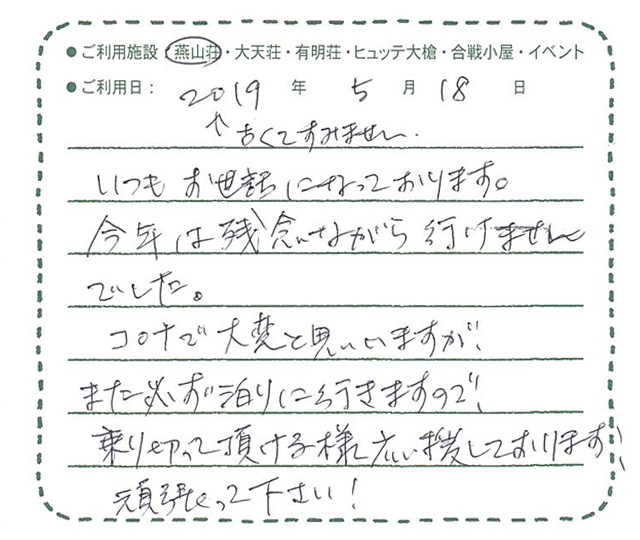 ● ご利用施設：燕山荘・大天荘・有明荘・ヒュッテ大槍・合戦小屋・イベント
● ご利用日： 2019 年 5 月 18 日
↑古くてすみません.
いつもお世話になっております。
今年は残念ながら行けません
でした。
コロナで大変と思いますが、
また必ず泊りに行きますので、
乗り切って頂ける様応援しております！
頑張って下さい！